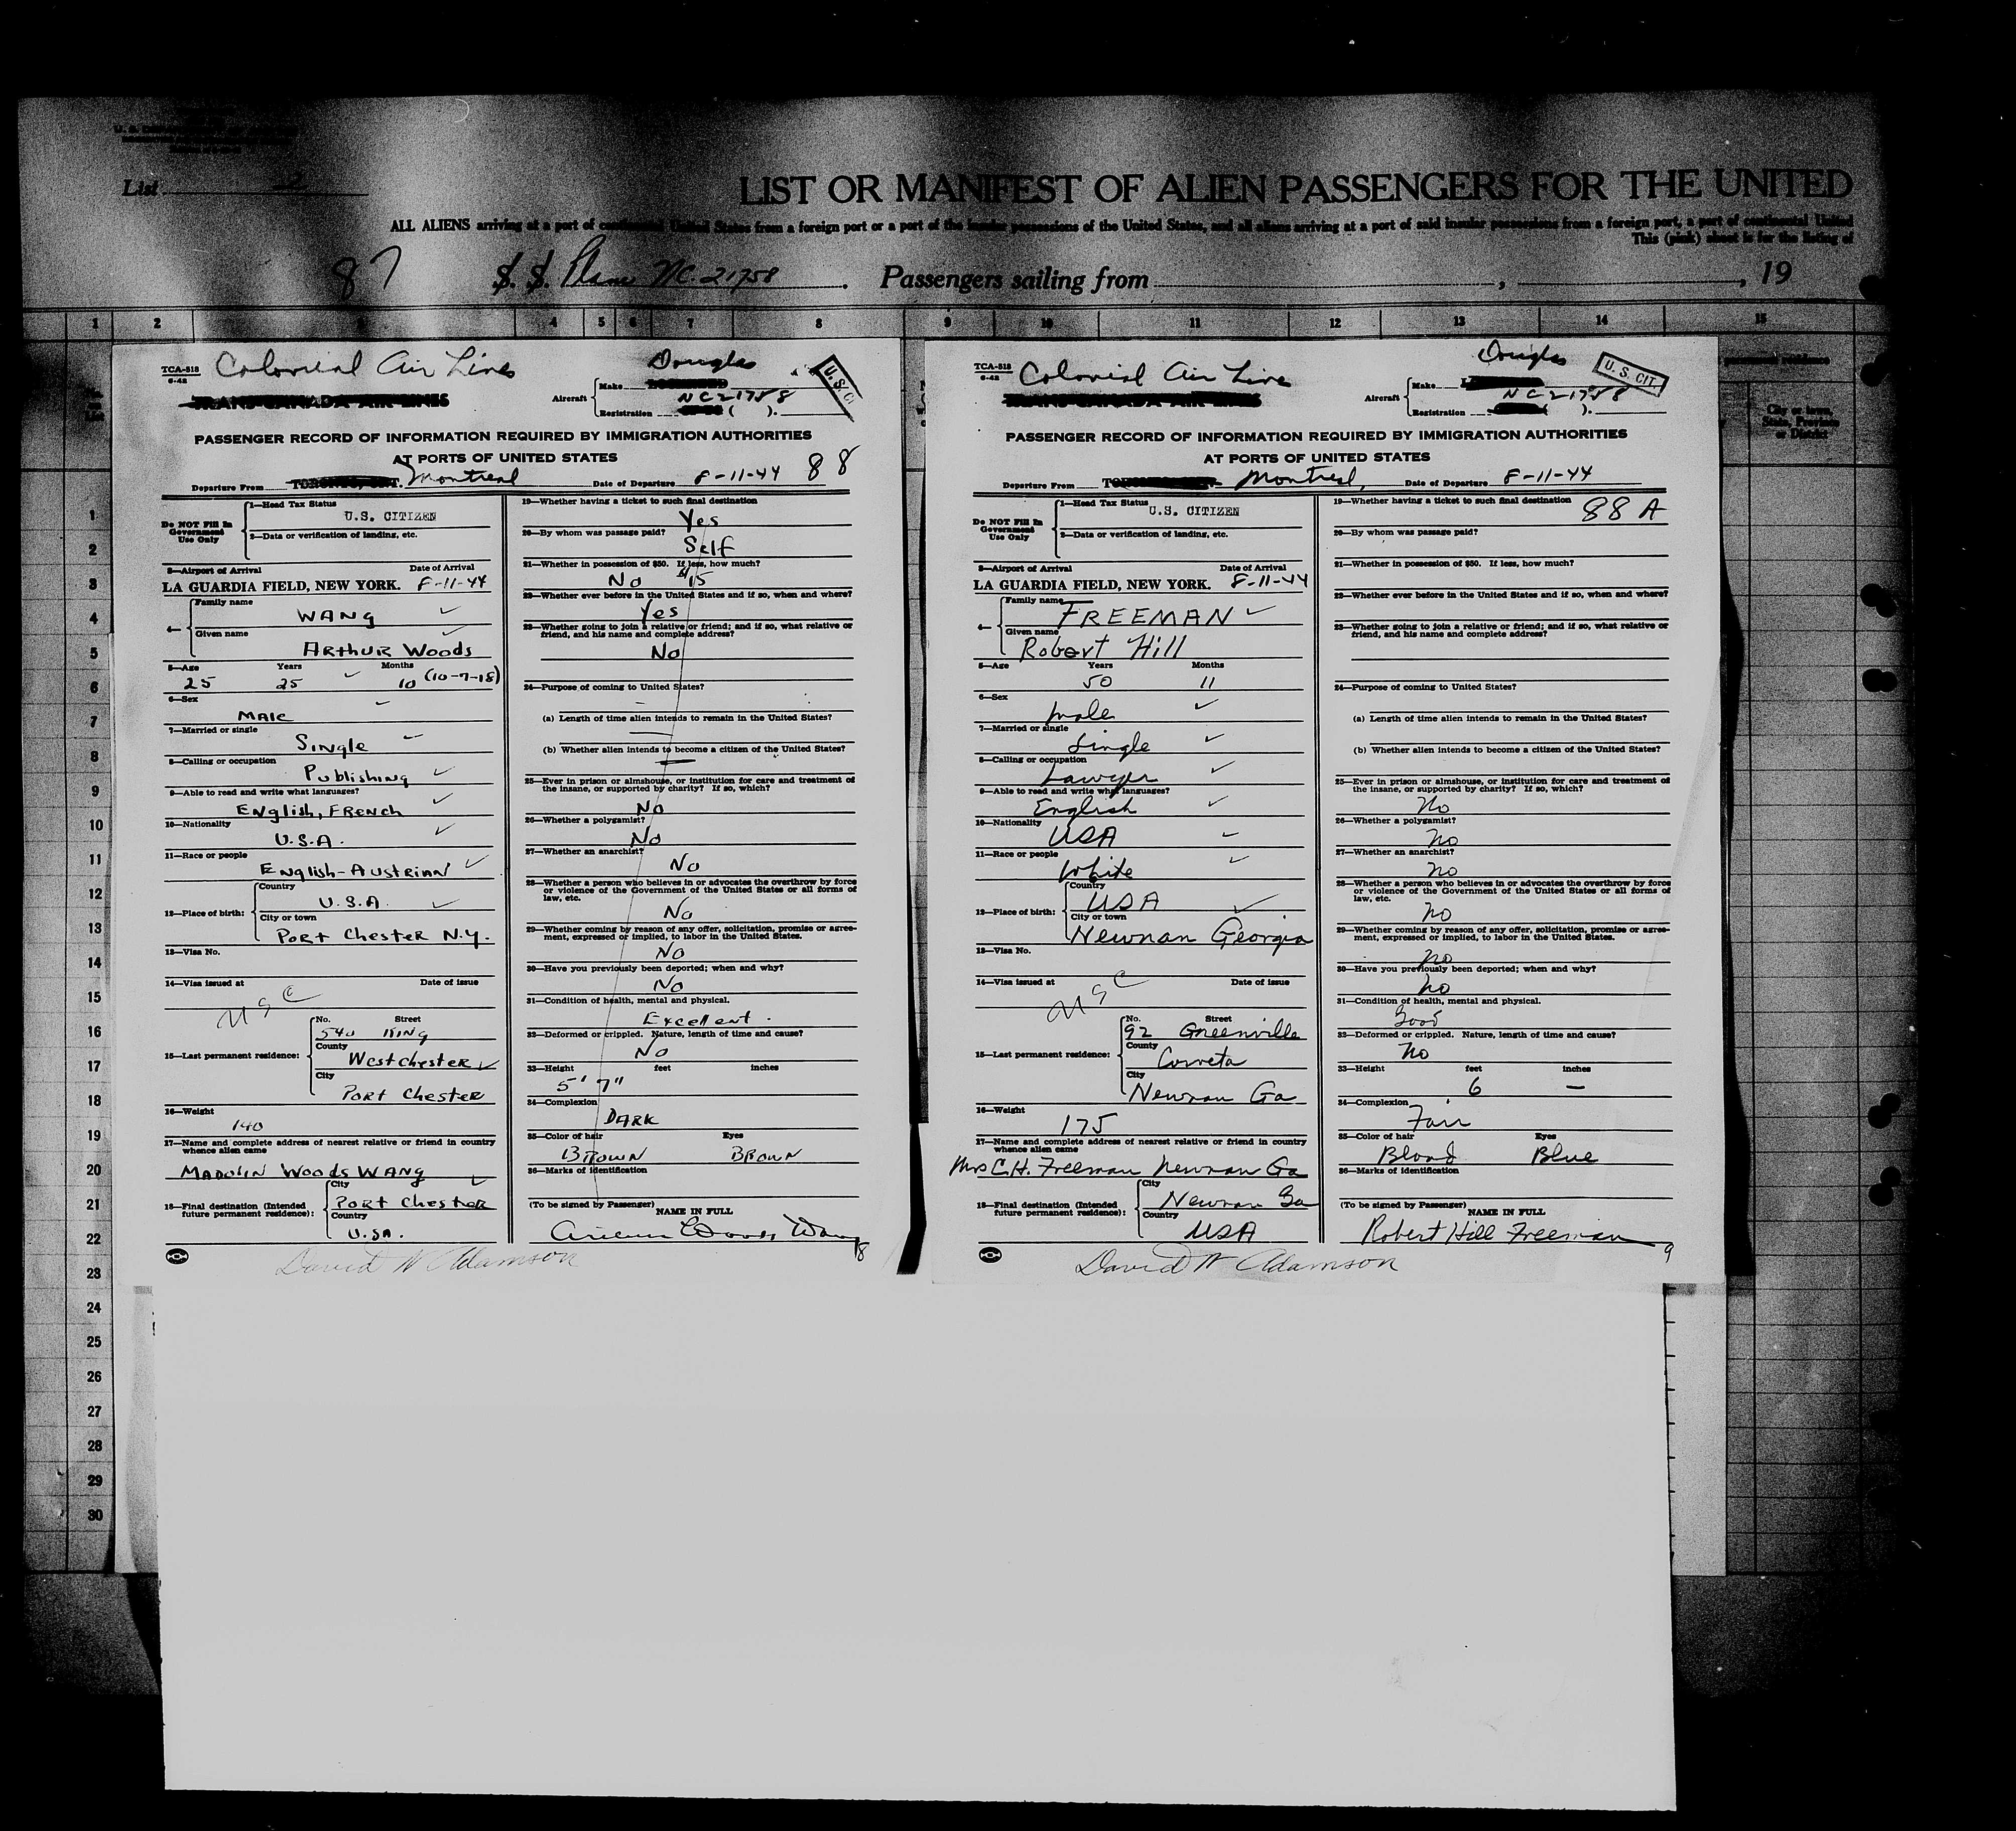 List 2
LIST OR MANIFEST OF ALIEN PASSENGERS FOR THE UNITED
ALL ALIENS arriving at a port of continental United States from a foreign port or a port of the insular possessions of the United States, and all aliens arriving at a port of said insular possessions from a foreign port, a port of continental United
This (pink) sheet is for the listing of
87 S. S. Plane NC. 21758. Passengers sailing from , , 19
1 2 3 4 5 6 7 8 9 10 11 12 13 14 15
permanent residence
City or town, State, Province or District
TCA-518
6-42
Colonial Air Lines
TRANS-CANADA AIR LINES
Aircraft
Make Douglas
Registration NC21758 ( ).
U.S. CI
PASSENGER RECORD OF INFORMATION REQUIRED BY IMMIGRATION AUTHORITIES
AT PORTS OF UNITED STATES 88
Departure From Montreal Date of Departure 8-11-44
Do NOT Fill In Government Use Only
1—Head Tax Status
U.S. CITIZEN
2—Data or verification of landing, etc.
3—Airport of Arrival Date of Arrival
LA GUARDIA FIELD, NEW YORK. 8-11-44
4—
Family name
WANG
Given name
ARthUR Woods
5—Age Years Months
25 25 10 (10-7-18)
6—Sex
MAlE
7—Married or single
SINgle
8—Calling or occupation
Publishing
9—Able to read and write what languages?
ENglish, FRench
10—Nationality
U.S.A.
11—Race or people
ENglish-AustriaN
12—Place of birth:
Country
U.S.A.
City or town
Port Chester N.Y.
13—Visa No.
14—Visa issued at Date of issue
USC
15—Last permanent residence:
No. Street
540 KING
County
WestchesteR
City
PoRt ChesteR
16—Weight
140
17—Name and complete address of nearest relative or friend in country whence alien came
MADOlIN Woods WANG
18—Final destination (Intended future permanent residence):
City
PoRt ChesteR
Country
U.SA.
19—Whether having a ticket to such final destination
Yes
20—By whom was passage paid?
Self
21—Whether in possession of $50. If less, how much?
No $15
22—Whether ever before in the United States and if so, when and where?
Yes
23—Whether going to join a relative or friend; and if so, what relative or
friend, and his name and complete address?
No
24—Purpose of coming to United States?
(a) Length of time alien intends to remain in the United States?
(b) Whether alien intends to become a citizen of the United States?
25—Ever in prison or almshouse, or institution for care and treatment of
the insane, or supported by charity? If so, which?
No
26—Whether a polygamist?
No
27—Whether an anarchist?
No
28—Whether a person who believes in or advocates the overthrow by force
or violence of the Government of the United States or all forms of
law, etc.
No
29—Whether coming by reason of any offer, solicitation, promise or agree-
ment, expressed or implied, to labor in the United States.
No
30—Have you previously been deported; when and why?
No
31—Condition of health, mental and physical.
Excellent.
32—Deformed or crippled. Nature, length of time and cause?
No
33—Height feet inches
5' 7"
34—Complexion
DARK
35—Color of hair Eyes
BROWN BROWN
36—Marks of identification
(To be signed by Passenger) NAME IN FULL
Arthur Woods Wang
18
David W Adamson
TCA-518
6-42
Colonial Air Line
TRANS-CANADA AIR LINES
Aircraft
Make Douglas
Registration NC21758 ( ).
U. S. CIT.
PASSENGER RECORD OF INFORMATION REQUIRED BY IMMIGRATION AUTHORITIES
AT PORTS OF UNITED STATES
Departure From Montreal, Date of Departure 8-11-44
Do NOT Fill In Government Use Only
1—Head Tax Status
U.S. CITIZEN
2—Data or verification of landing, etc.
3—Airport of Arrival Date of Arrival
LA GUARDIA FIELD, NEW YORK. 8-11-44
4—
Family name
FREEMAN
Given name
Robert Hill
5—Age Years Months
50 11
6—Sex
male
7—Married or single
Single
8—Calling or occupation
Lawyer
9—Able to read and write what languages?
English
10—Nationality
USA
11—Race or people
White
12—Place of birth:
Country
USA
City or town
Newnan Georgia
13—Visa No.
14—Visa issued at Date of issue
USC
15—Last permanent residence:
No. Street
92 Greenville
County
Coweta
City
Newnan Ga
16—Weight
175
17—Name and complete address of nearest relative or friend in country whence alien came
Mrs C.H. Freeman Newnan Ga
18—Final destination (Intended future permanent residence):
City
Newnan Ga
Country
USA
19—Whether having a ticket to such final destination
88 A
20—By whom was passage paid?
21—Whether in possession of $50. If less, how much?
22—Whether ever before in the United States and if so, when and where?
23—Whether going to join a relative or friend; and if so, what relative or
friend, and his name and complete address?
24—Purpose of coming to United States?
(a) Length of time alien intends to remain in the United States?
(b) Whether alien intends to become a citizen of the United States?
25—Ever in prison or almshouse, or institution for care and treatment of
the insane, or supported by charity? If so, which?
No
26—Whether a polygamist?
no
27—Whether an anarchist?
no
28—Whether a person who believes in or advocates the overthrow by force
or violence of the Government of the United States or all forms of
law, etc.
no
29—Whether coming by reason of any offer, solicitation, promise or agree-
ment, expressed or implied, to labor in the United States.
no
30—Have you previously been deported; when and why?
no
31—Condition of health, mental and physical.
Good
32—Deformed or crippled. Nature, length of time and cause?
no
33—Height feet inches
6 —
34—Complexion
Fair
35—Color of hair Eyes
Blond Blue
36—Marks of identification
(To be signed by Passenger) NAME IN FULL
Robert Hill Freeman
9
David W Adamson
1
2
3
4
5
6
7
8
9
10
11
12
13
14
15
16
17
18
19
20
21
22
23
24
25
26
27
28
29
30